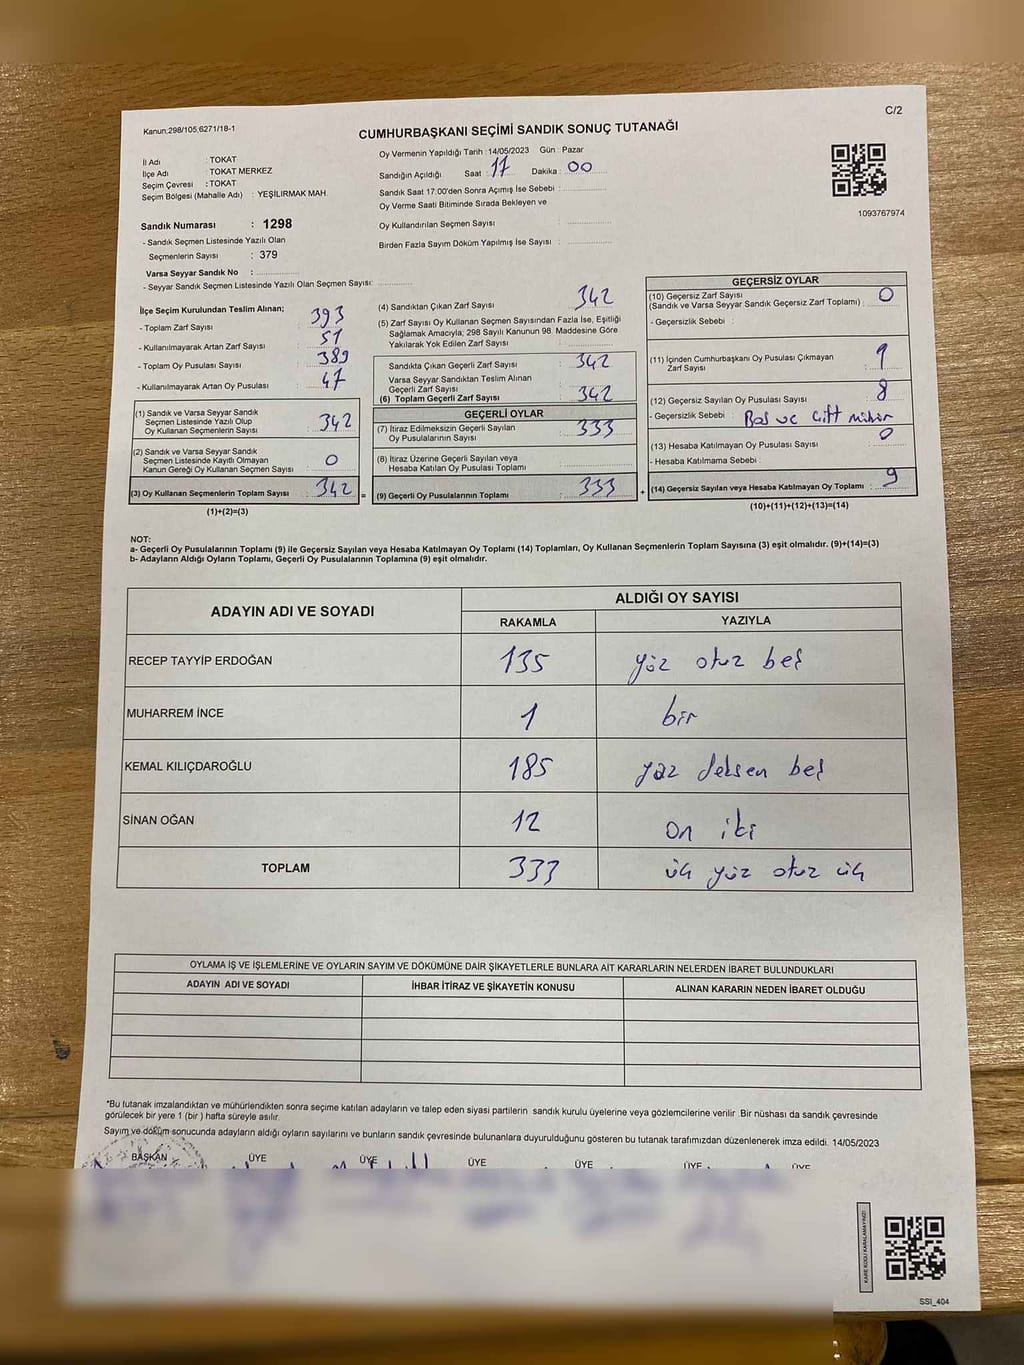 C/2
Kanun;298/105;6271/18-1
CUMHURBAŞKANI SEÇİMİ SANDIK SONUÇ TUTANAĞI
İl Adı : TOKAT
İlçe Adı : TOKAT MERKEZ
Seçim Çevresi : TOKAT
Seçim Bölgesi (Mahalle Adı) : YEŞİLIRMAK MAH.
Oy Vermenin Yapıldığı Tarih : 14/05/2023 Gün : Pazar
Sandığın Açıldığı Saat : 17 Dakika : 00
Sandık Saat 17.00'den Sonra Açımış İse Sebebi :
Oy Verme Saati Bitiminde Sırada Bekleyen ve
Oy Kullandırılan Seçmen Sayısı :
Birden Fazla Sayım Döküm Yapılmış İse Sayısı :
1093767974
Sandık Numarası : 1298
- Sandık Seçmen Listesinde Yazılı Olan
Seçmenlerin Sayısı : 379
Varsa Seyyar Sandık No :
- Seyyar Sandık Seçmen Listesinde Yazılı Olan Seçmen Sayısı:
İlçe Seçim Kurulundan Teslim Alınan;
- Toplam Zarf Sayısı : 393
- Kullanılmayarak Artan Zarf Sayısı : 51
- Toplam Oy Pusulası Sayısı : 389
- Kullanılmayarak Artan Oy Pusulası : 47
(1) Sandık ve Varsa Seyyar Sandık
Seçmen Listesinde Yazılı Olup
Oy Kullanan Seçmenlerin Sayısı : 342
(2) Sandık ve Varsa Seyyar Sandık
Seçmen Listesinde Kayıtlı Olmayan
Kanun Gereği Oy Kullanan Seçmen Sayısı : 0
(3) Oy Kullanan Seçmenlerin Toplam Sayısı : 342 =
(1)+(2)=(3)
(4) Sandıktan Çıkan Zarf Sayısı : 342
(5) Zarf Sayısı Oy Kullanan Seçmen Sayısından Fazla İse, Eşitliği
Sağlamak Amacıyla; 298 Sayılı Kanunun 98. Maddesine Göre
Yakılarak Yok Edilen Zarf Sayısı :
Sandıkta Çıkan Geçerli Zarf Sayısı : 342
Varsa Seyyar Sandıktan Teslim Alınan
Geçerli Zarf Sayısı :
(6) Toplam Geçerli Zarf Sayısı : 342
GEÇERLİ OYLAR
(7) İtiraz Edilmeksizin Geçerli Sayılan
Oy Pusulalarının Sayısı : 333
(8) İtiraz Üzerine Geçerli Sayılan veya
Hesaba Katılan Oy Pusulası Toplamı :
(9) Geçerli Oy Pusulalarının Toplamı : 333 +
GEÇERSİZ OYLAR
(10) Geçersiz Zarf Sayısı
(Sandık ve Varsa Seyyar Sandık Geçersiz Zarf Toplamı) : 0
- Geçersizlik Sebebi :
(11) İçinden Cumhurbaşkanı Oy Pusulası Çıkmayan
Zarf Sayısı : 1
(12) Geçersiz Sayılan Oy Pusulası Sayısı : 8
- Geçersizlik Sebebi : Boş ve çift mühür
(13) Hesaba Katılmayan Oy Pusulası Sayısı : 0
- Hesaba Katılmama Sebebi :
(14) Geçersiz Sayılan veya Hesaba Katılmayan Oy Toplamı : 9
(10)+(11)+(12)+(13)=(14)
NOT:
a- Geçerli Oy Pusulalarının Toplamı (9) ile Geçersiz Sayılan veya Hesaba Katılmayan Oy Toplamı (14) Toplamları, Oy Kullanan Seçmenlerin Toplam Sayısına (3) eşit olmalıdır. (9)+(14)=(3)
b- Adayların Aldığı Oyların Toplamı, Geçerli Oy Pusulalarının Toplamına (9) eşit olmalıdır.
ADAYIN ADI VE SOYADI ALDIĞI OY SAYISI
RAKAMLA YAZIYLA
RECEP TAYYİP ERDOĞAN 135 yüz otuz beş
MUHARREM İNCE 1 bir
KEMAL KILIÇDAROĞLU 185 yüz seksen beş
SİNAN OĞAN 12 on iki
TOPLAM 333 üç yüz otuz üç
OYLAMA İŞ VE İŞLEMLERİNE VE OYLARIN SAYIM VE DÖKÜMÜNE DAİR ŞİKAYETLERLE BUNLARA AİT KARARLARIN NELERDEN İBARET BULUNDUKLARI
ADAYIN ADI VE SOYADI İHBAR İTİRAZ VE ŞİKAYETİN KONUSU ALINAN KARARIN NEDEN İBARET OLDUĞU
*Bu tutanak imzalandıktan ve mühürlendikten sonra seçime katılan adayların ve talep eden siyasi partilerin sandık kurulu üyelerine veya gözlemcilerine verilir .Bir nüshası da sandık çevresinde
görülecek bir yere 1 (bir ) hafta süreyle asılır.
Sayım ve döküm sonucunda adayların aldığı oyların sayılarını ve bunların sandık çevresinde bulunanlara duyurulduğunu gösteren bu tutanak tarafımızdan düzenlenerek imza edildi. 14/05/2023
BAŞKAN ÜYE ÜYE ÜYE ÜYE ÜYE ÜYE
KARE KODU KARALAMAYINIZ!
SSI_404